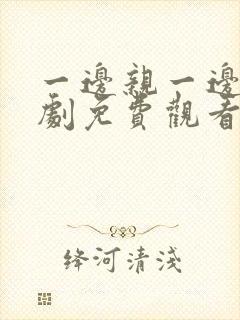 一邊親一邊
劇免費觀看
絳河清淺